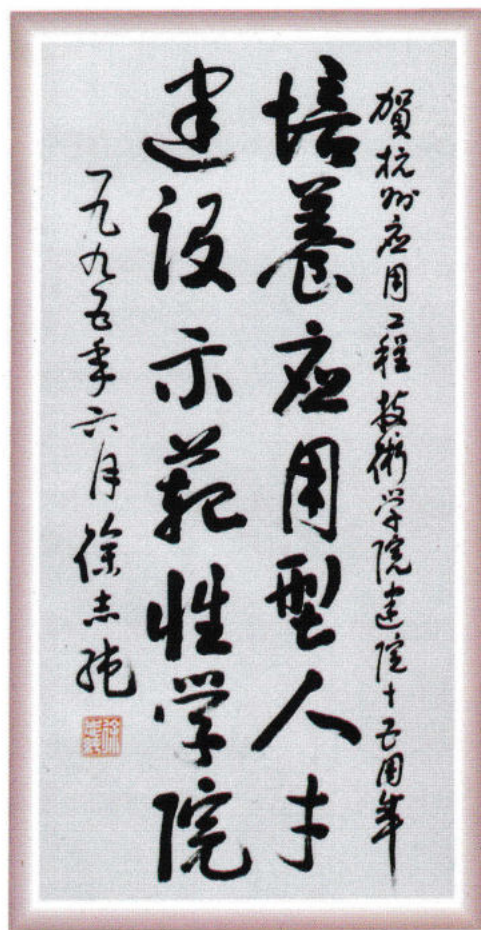 賀杭州应用工程技術学院建院十五周年
培養应用型人才
建设示範性学院
一九九五年六月 徐志纯